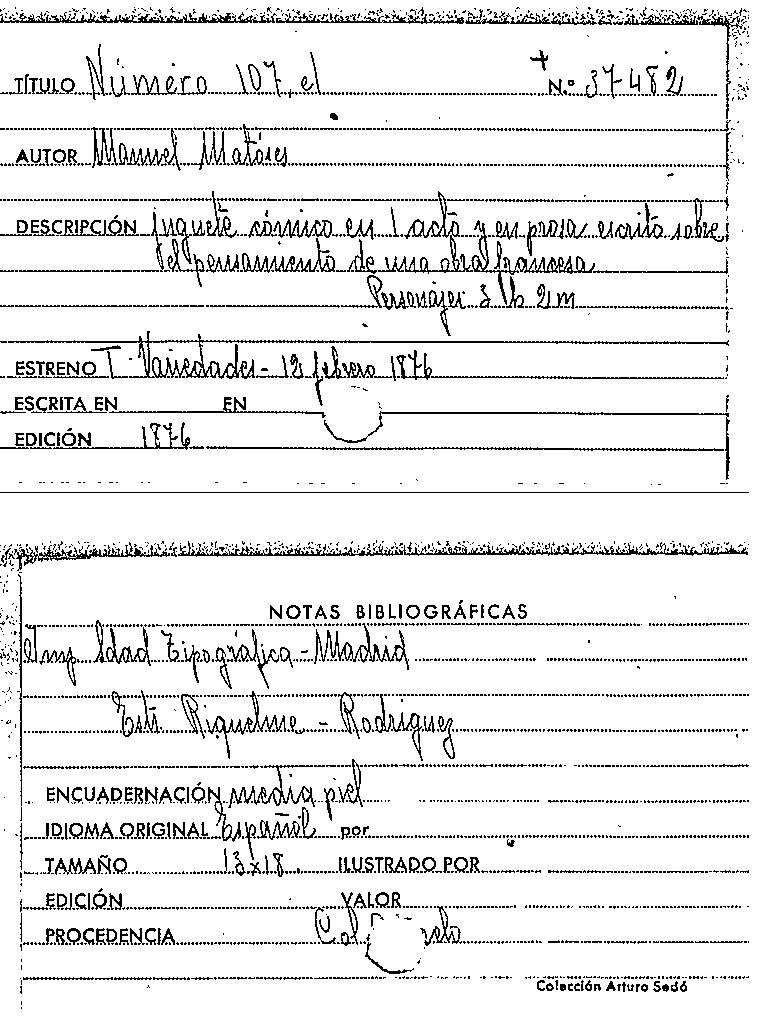 TÍTULO Número 107, el N.º 37482
AUTOR Manuel Matóses
DESCRIPCIÓN juguete cómico en 1 acto y en prosa escrito sobre
el pensamiento de una obra francesa
Personajes 3 h 2 m
ESTRENO T. Variedades - 12 febrero 1876
ESCRITA EN EN
EDICIÓN 1876
NOTAS BIBLIOGRÁFICAS
Imp Sdad Tipográfica - Madrid
Estr. Riquelme - Rodriguez
ENCUADERNACIÓN media piel
IDIOMA ORIGINAL Español por
TAMAÑO 13x18. ILUSTRADO POR
EDICIÓN VALOR
PROCEDENCIA
Colección Arturo Sedó